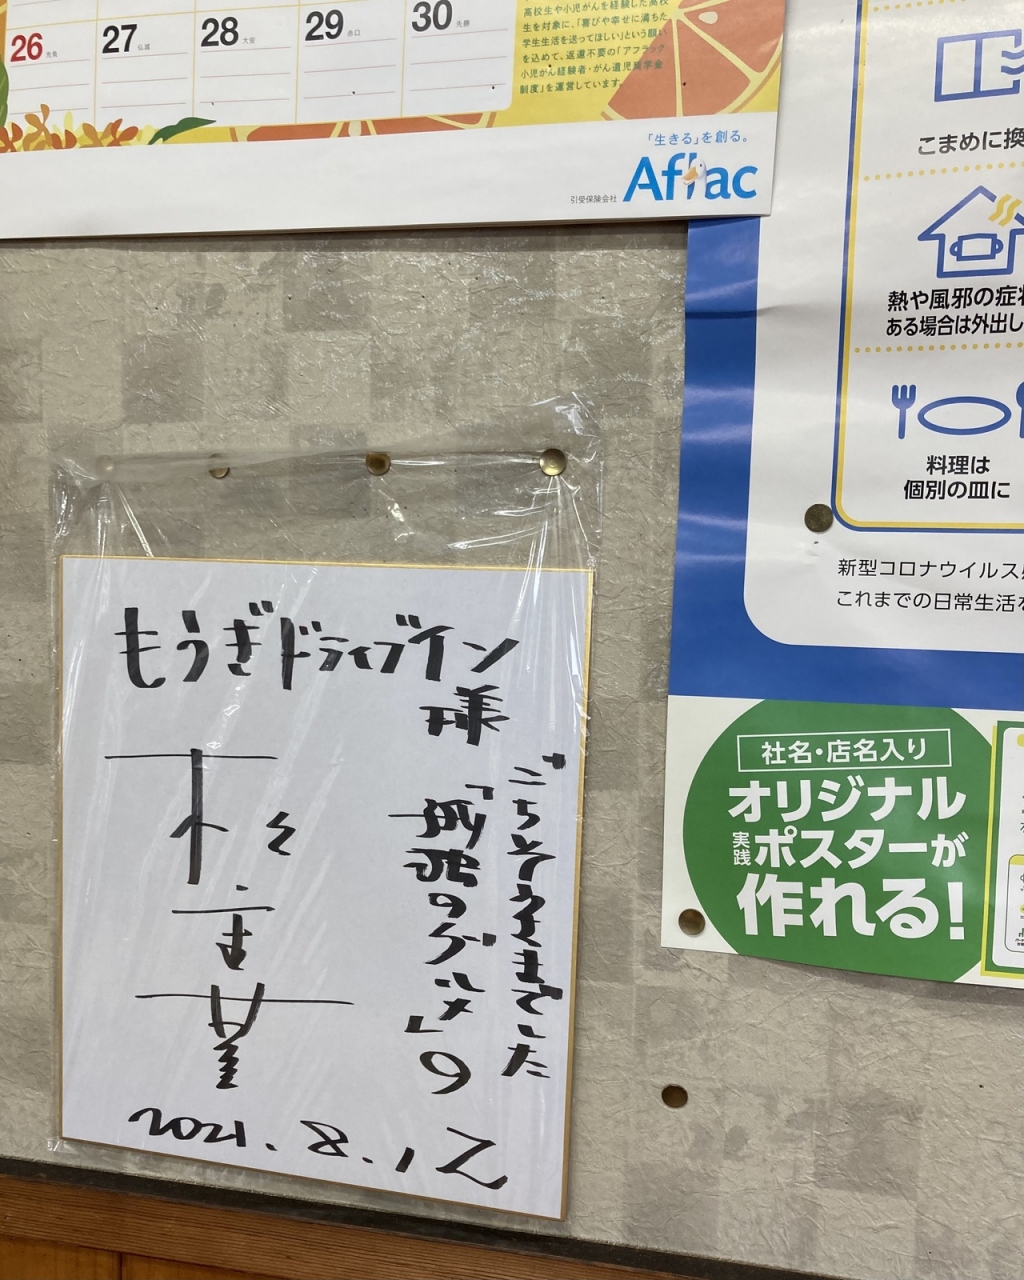 高校生や小児がんを経験した高校
生を対象に、「喜びや幸せに満ちた
学生生活を送ってほしい」という願い
を込めて、返還不要の「アフラック
小児がん経験者・がん遺児奨学金
制度」を運営しています。
26 先負
27 仏滅
28 大安
29 赤口
30 先勝
「生きる」を創る。
引受保険会社
Aflac
こまめに換
熱や風邪の症状
ある場合は外出し
料理は
個別の皿に
新型コロナウイルス
これまでの日常生活
社名・店名入り
オリジナル
実践
ポスターが
作れる!
もうぎドライブイン
様
ごちそうさまでした
「孤独のグルメ」の
松重
豊
2021.8.12